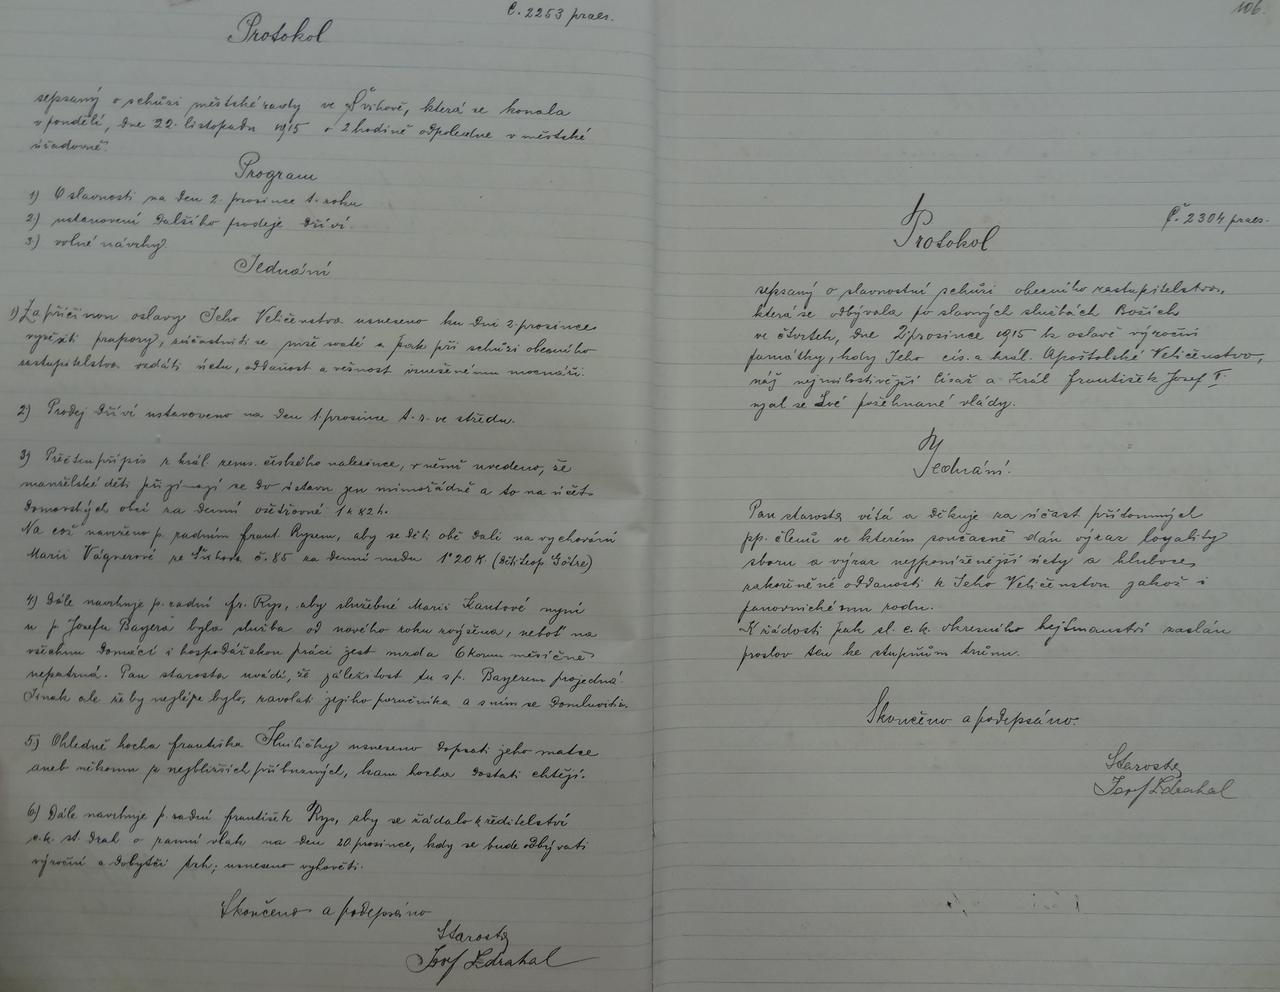 Č. 2253 praes.
Protokol
sepsaný o schůzi městské rady ve Švihově, která se konala
v pondělí, dne 22. listopadu 1915 o 2 hodině odpoledne v městské
úřadovně.
Program
1) O slavnosti na den 2. prosince t. roku
2) ustanovení dalšího prodeje dříví.
3) volné návrhy.
Jednání
1) Za příčinou oslavy Jeho Veličenstva usneseno ku dni 2. prosince
vyvěsiti prapory, súčastniti se mše svaté a pak při schůzi obecního
zastupitelstva vzdáti úctu, oddanost a věrnost vznešenému mocnáři.
2) Prodej dříví ustanoveno na den 1. prosince t. r. ve středu.
3) Přečten přípis z král. zems. českého nalezince, v němž uvedeno, že
manželské děti přijímají se do ústavu jen mimořádně a to na účet
domovských obcí za denní ošetřovné 1 K 82 h.
Na což navrženo p. radním Frant. Rysem, aby se děti obě dali na vychování
Marii Vágnerové ze č. 85 za denní mzdu 1·20 K. (děti Götze)
4) Dále navrhuje p. radní Fr. Rys, aby služebné Marii Kantové nyní
u p. Josefa Bayera byla služba od nového roku zvýšena, neboť na
všechnu domácí i hospodářskou práci jest mzda 6 korun měsíčně
nepatrná. Pan starosta uvádí, že záležitost tu s p. Bayerem projedná.
Jinak ale že by nejlépe bylo, zavolati jejího poručníka a s ním se domluviti.
5) Ohledně hocha Františka usneseno dopsati jeho matce
aneb někomu z nejbližších příbuzných, kam hocha dostati chtějí.
6) Dále navrhuje p. radní František Rys, aby se žádalo k ředitelství
c. k. st. drah o ranní vlak na den 20 prosince, kdy se bude odbývati
výroční a dobytčí trh; usneseno vyhověti.
Skončeno a podepsáno
Starosta
Josef Zdrahal
106.
Č. 2304 praes.
Protokol
sepsaný o slavnostní schůzi obecního zastupitelstva,
která se odbývala po slavných službách Božích
ve čtvrtek, dne 2. prosince 1915 k oslavě výroční
památky, kdy Jeho cís. a král. Apoštolské Veličenstvo,
náš nejmilostivější Císař a Král František Josef I.
ujal se Své požehnané vlády.
Jednání.
Pan starosta vítá a děkuje za účast přítomných
pp. členů ve kterém současně dán výraz loyality
sboru a výraz nejponíženější úcty a hluboce
zakořeněné oddanosti k Jeho Veličenstvu jakož i
panovnickému rodu.
K žádosti pak sl. c. k. okresního hejtmanství zaslán
proslov ten ke stupňům trůnu.
Skončeno a podepsáno.
Starosta
Josef Zdrahal